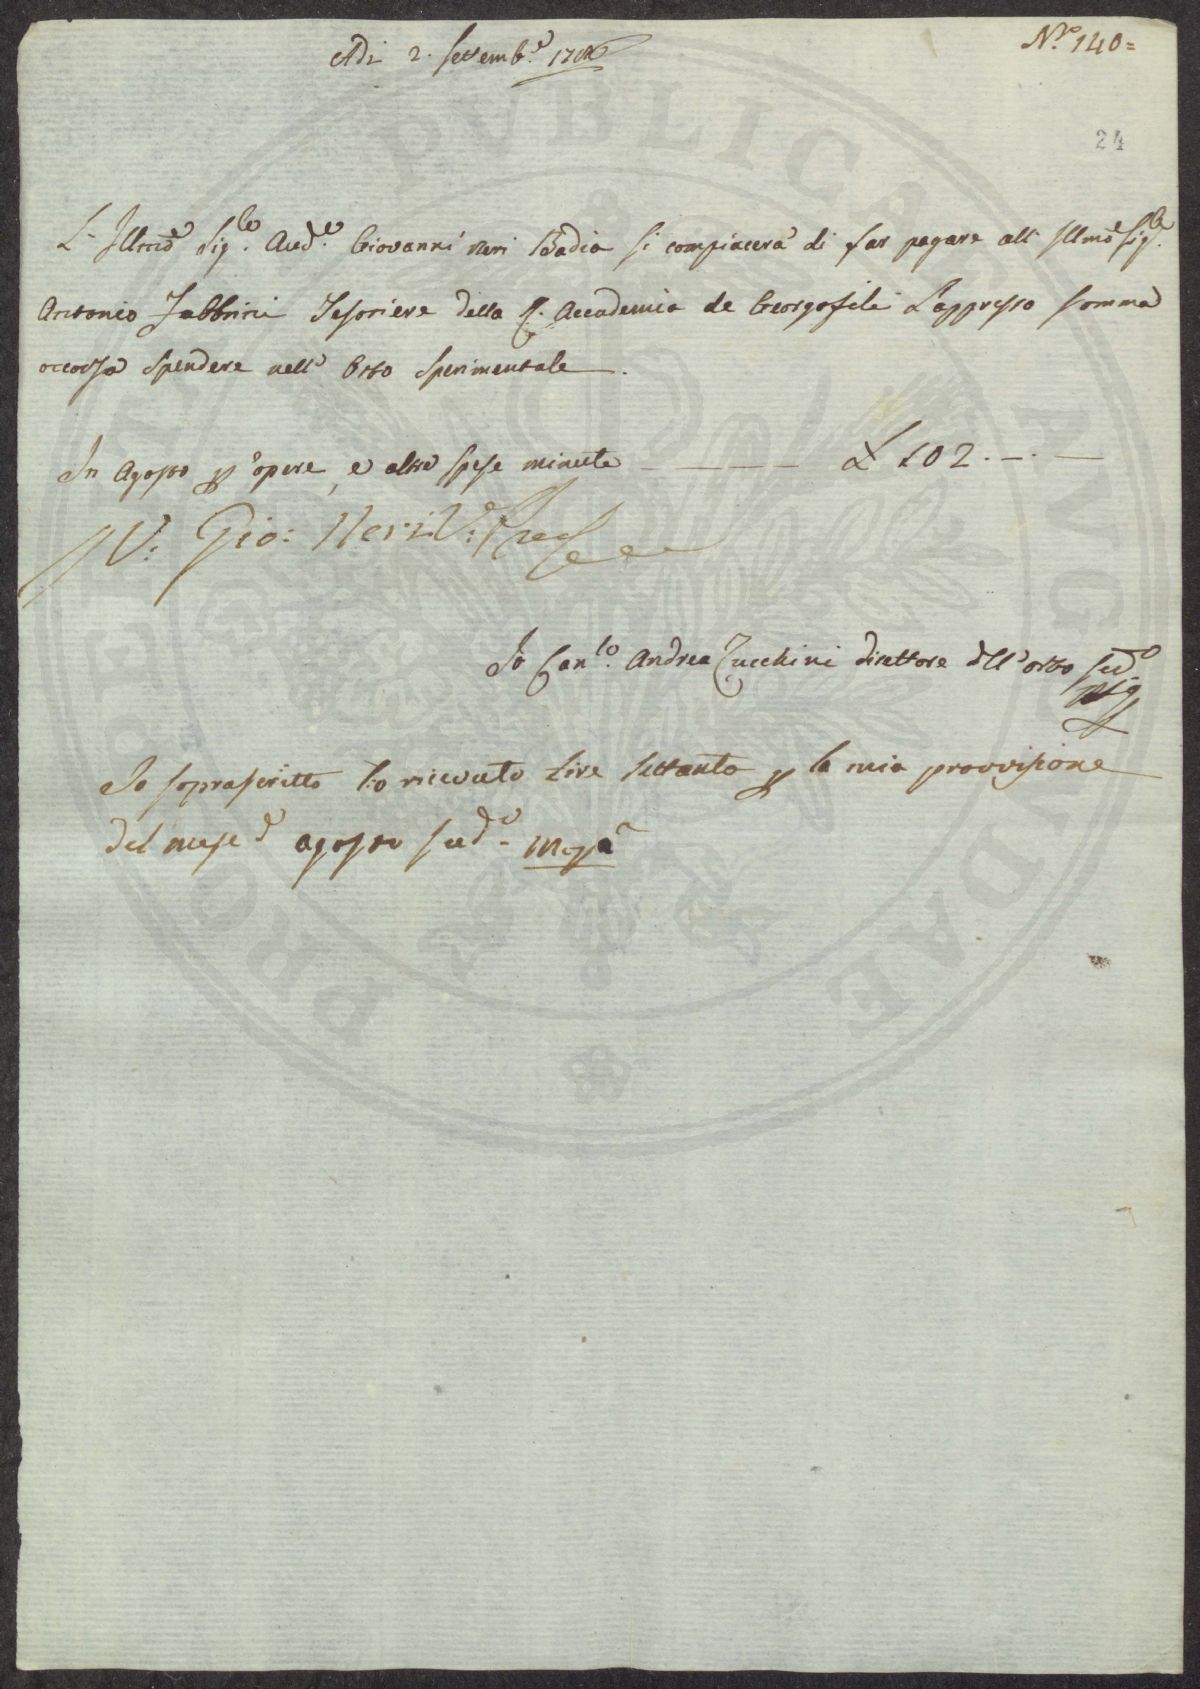 N.ro 140=
Adì 2. Settemb.e
24
L'Illmo Sig.re Aud.e Giovanni Neri Badia si compiacerà di far pagare all Illmo Sig.re
Antonio Fabbrini Tesoriere della R. Accademia de Georgofili l'appresso somma
occorsa spendere nell'Orto sperimentale.
In Agosto p opere, e altre spese minute — — — — £ 102. — . —
V: Gio: Neri
Io Can.co Andrea Zucchini direttore dell'orto sud.o
Io soprascritto ho ricevuto lire settanta p la mia provvisione
del mese d agosto sud.o
PUBLICAE MAGNUM PROSPERITATIS AUGENDAE